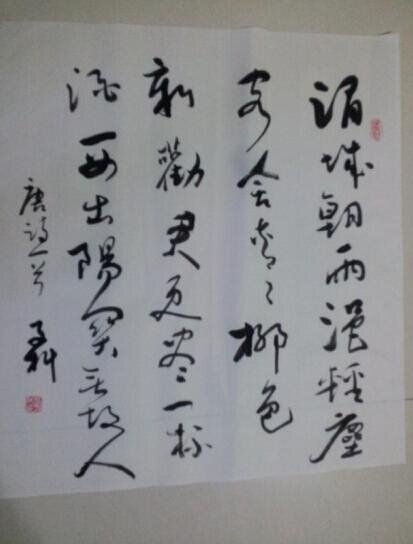 渭城朝雨浥輕塵
客舍青々柳色
新勸君更盡一杯
酒西出陽關無故人
唐詩一首